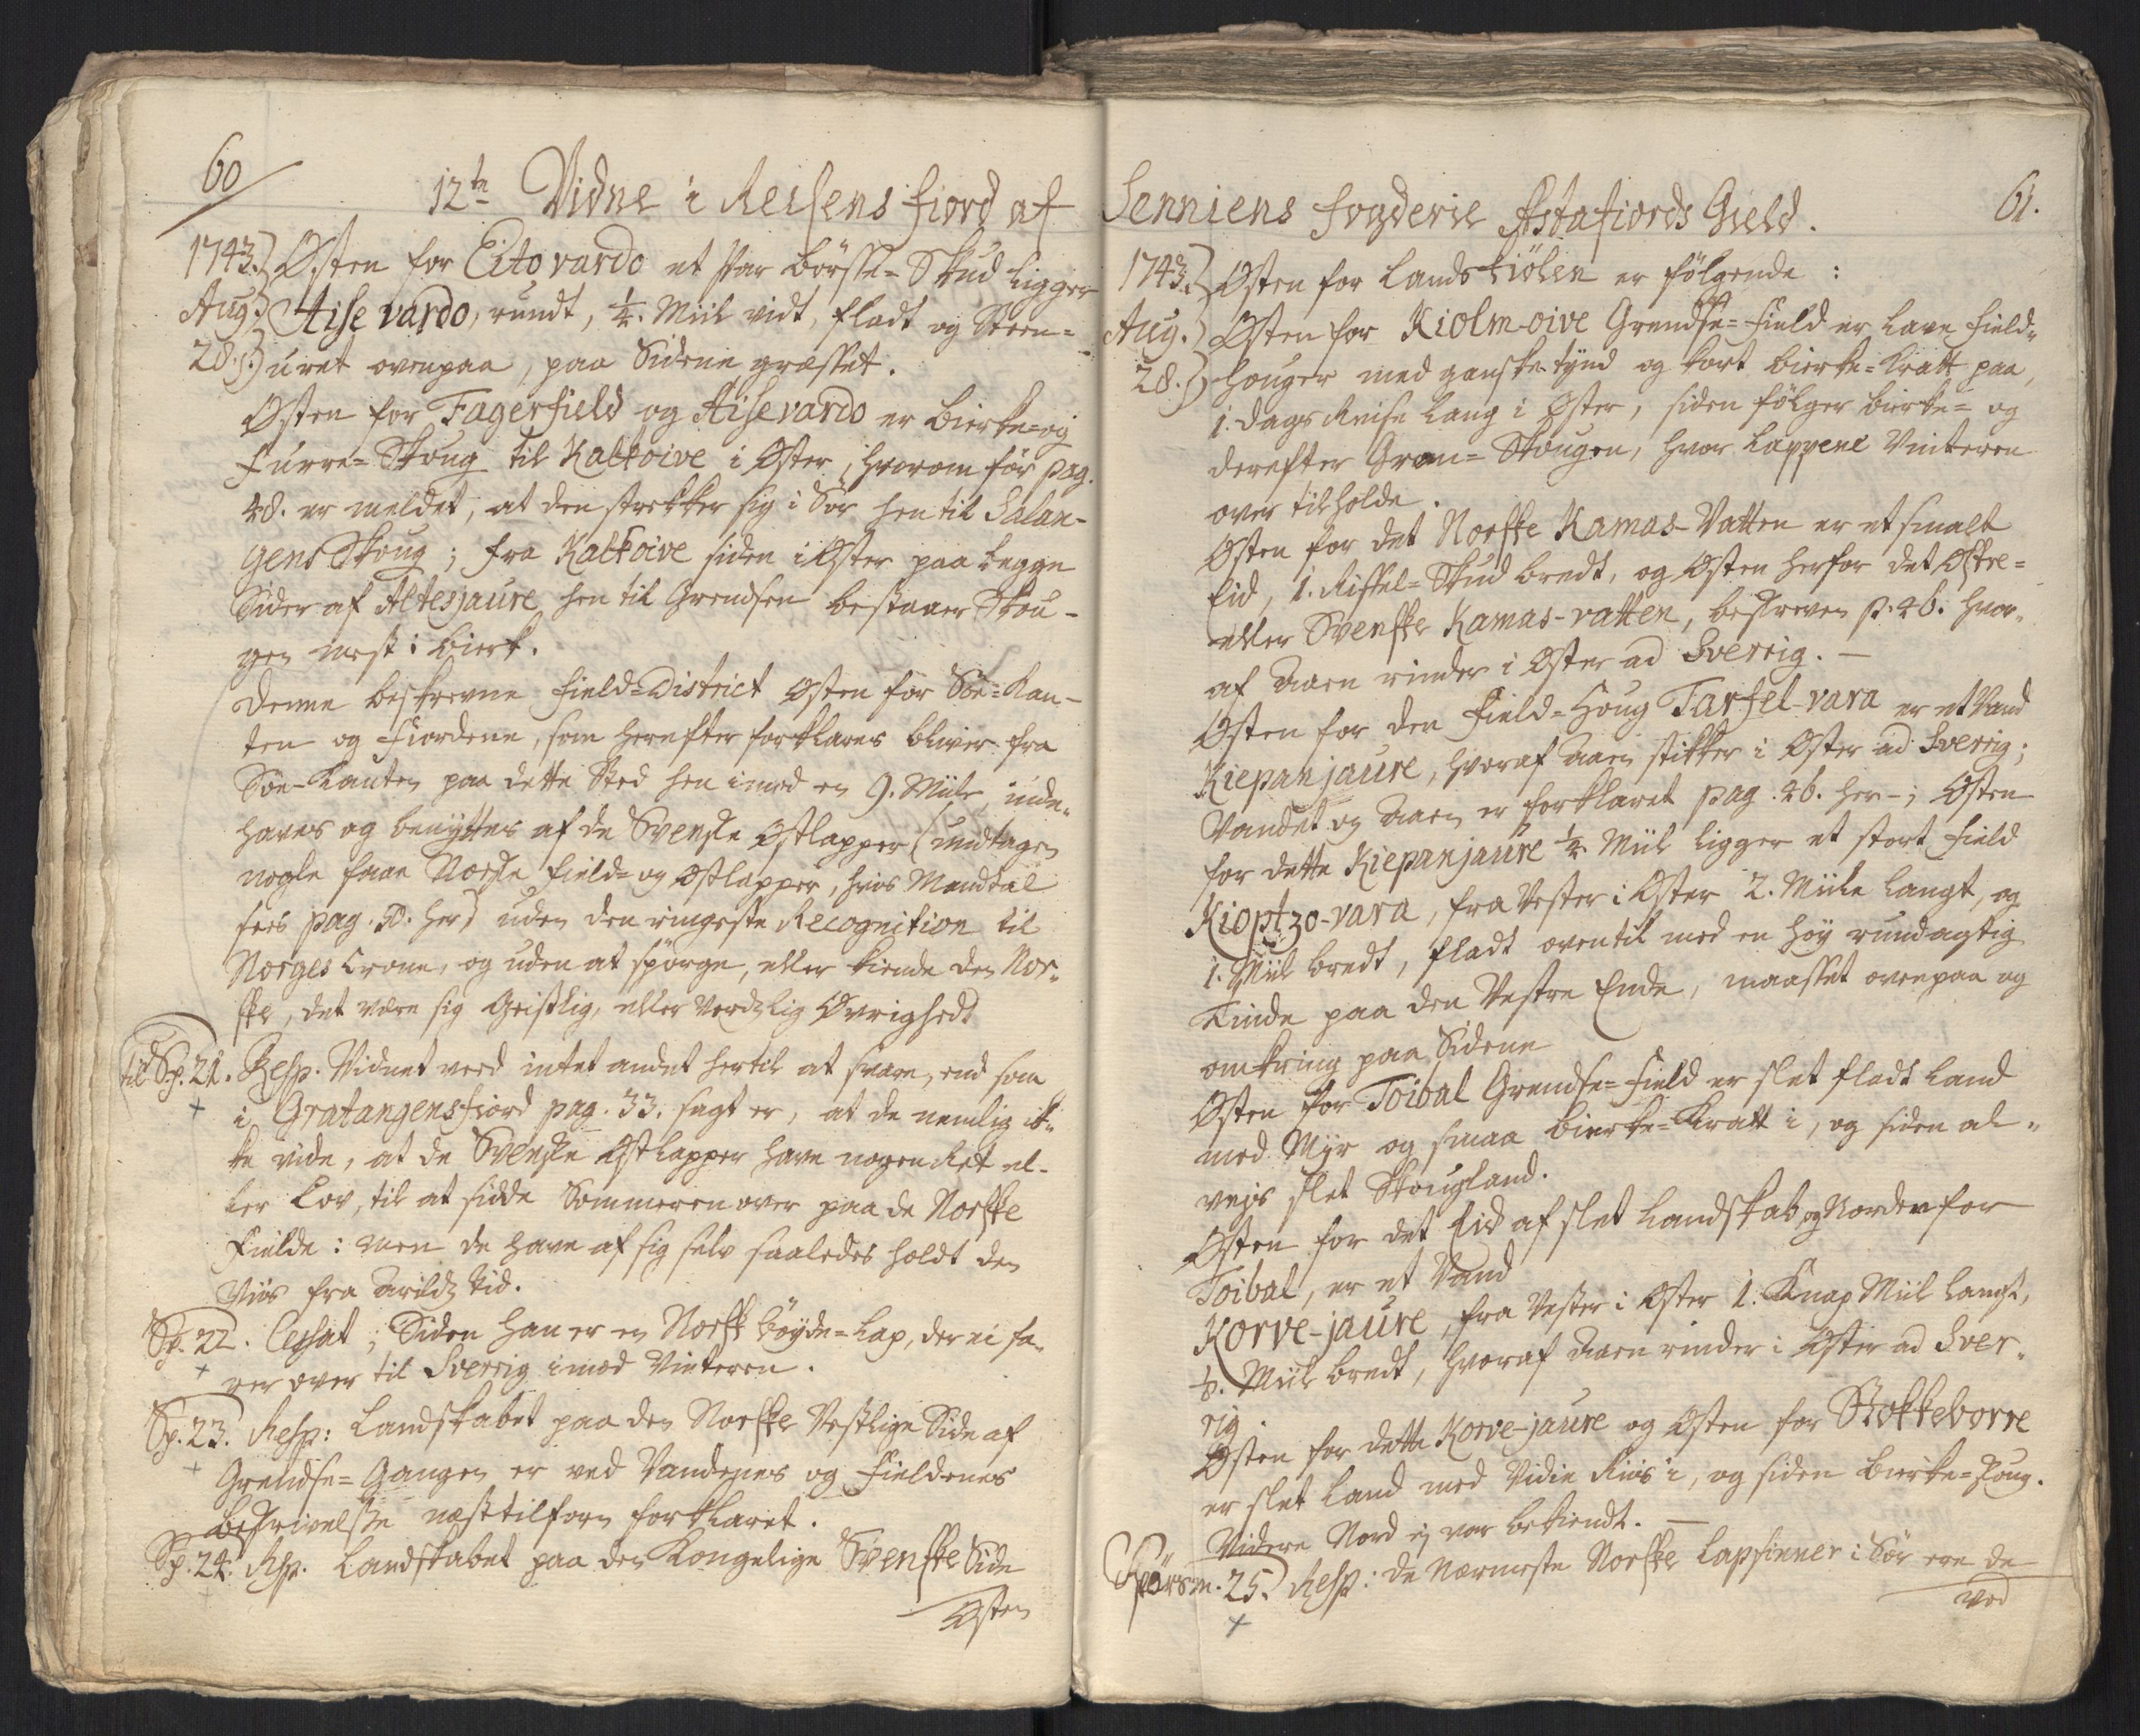 60
12te Vidne i Reisens fiord af
1743.) Østen for Eitovardo et Par Börsse-Skud ligger
Aug.) Aisevardo, rundt, 1/4. Miil vidt, fladt og Steen-
28.) uret ovenpaa, paa Siderne græsset.
Østen for Fagerfield og Aisevardo er Birke- og
Furre-Skoug til Kalkoive i Øster, hvorom för pag.
48. er meldet, at den strekker sig i Sör hen til Salan-
gens Skoug; fra Kalkoive siden i Øster paa begge
Sider af Altesjaure hen til Grendsen bestaaer Skou-
gen mest i Birk.
Denne beskrevne Field-District Østen for Söe-Kan-
ten og Fiordene, som herefter forklares bliver fra
Söe-Kanten paa dette Sted hen imod en 9. Miile, inde-
haves og benyttes af de Svenske Østlapper (undtagen
nogle faae Norske Field- og Østlapper, hvis Mandtal
sees pag. 50. her) uden den ringeste Recognition til
Norges Crone, og uden at spörge, eller kiende den Nor-
ske, det være sig Geistlig, eller Verdzlig Øvrighed.
til Sp. 21. Resp. Vidnet veed intet andet hertil at svare, end som
i Gratangensfiord pag. 33. sagt er, at de nemlig ik-
ke vide, at de Svenske Østlapper have nogen Ret el-
ler Lov, til at sidde Sommeren over paa de Norske
Fielde: men de have af sig selv saaledes holdt den
Viis fra Arildz tid.
Sp. 22. Cessat, Siden han er en Norsk böyde-Lap, der ei fa-
rer over til Sverrig imod Vinteren.
Sp. 23. Resp: Landskabet paa den Norske Vestlige Side af
Grendse-Gangen er ved Vandenes og Fieldenes
beskrivelse næst tilforn forklaret.
Sp. 24. Resp. Landskabet paa den Kongelige Svenske Side
Østen
Senniens fogderie Astafiords Gield.
61.
1743.) Østen for Landskiölen er fölgende:
Aug.) Østen for Kiolm-oive Grendse-Field er lave Field-
28.) Houger med ganske tynd og kort birke-Kratt paa,
1. Dags Reise lang i Øster, siden fölger birke- og
derefter Gran-Skougen, hvor Lappene Vinteren
over tilholde.
Østen for det Norske Kamas-Vatten er et smalt
Eid, 1. Riffel-Skud bredt, og Østen herfor det Østre-
eller Svenske Kamas-vatten, beskreven p. 46. hvor-
af Aaen rinder i Øster ad Sverrig. —
Østen for den Field-Houg Tarfel-vara er et Vand
Kiepanjaure, hvoraf Aaen stikker i Øster ad Sverrig;
Vandet og Aaen er forklaret pag. 46. her-; Østen
for dette Kiepanjaure 1/4 Miil ligger et stort Field
Kioptzo-vara, fra Vester i Øster 2. Miile langt, og
1. Miil bredt, fladt oventil med en höy rundagtig
Tinde paa den Vestre Ende, maasset ovenpaa og
omkring paa Siderne
Østen for Toibal Grendse-Field er slet fladt Land
med Myr og smaa birke-Kratt i, og siden al-
vejs slet Skougland.
Østen for det Eid af slet Landskab og Norden for
Toibal, er et Vand
Korve-jaure, fra Vester i Øster 1. Knap Miil langt,
1/8. Miil bredt, hvoraf Aaen rinder i Øster ad Sver-
rig.
Østen for dette Korve-jaure og Østen for Stokkeborre
er slet Land med Vidie Riis i, og siden birke-skoug.
Videre Nord ej var bekiendt. —
Spörsm. 25. Resp: de Nærmeste Norske Lapfinner i Sör ere de
ved